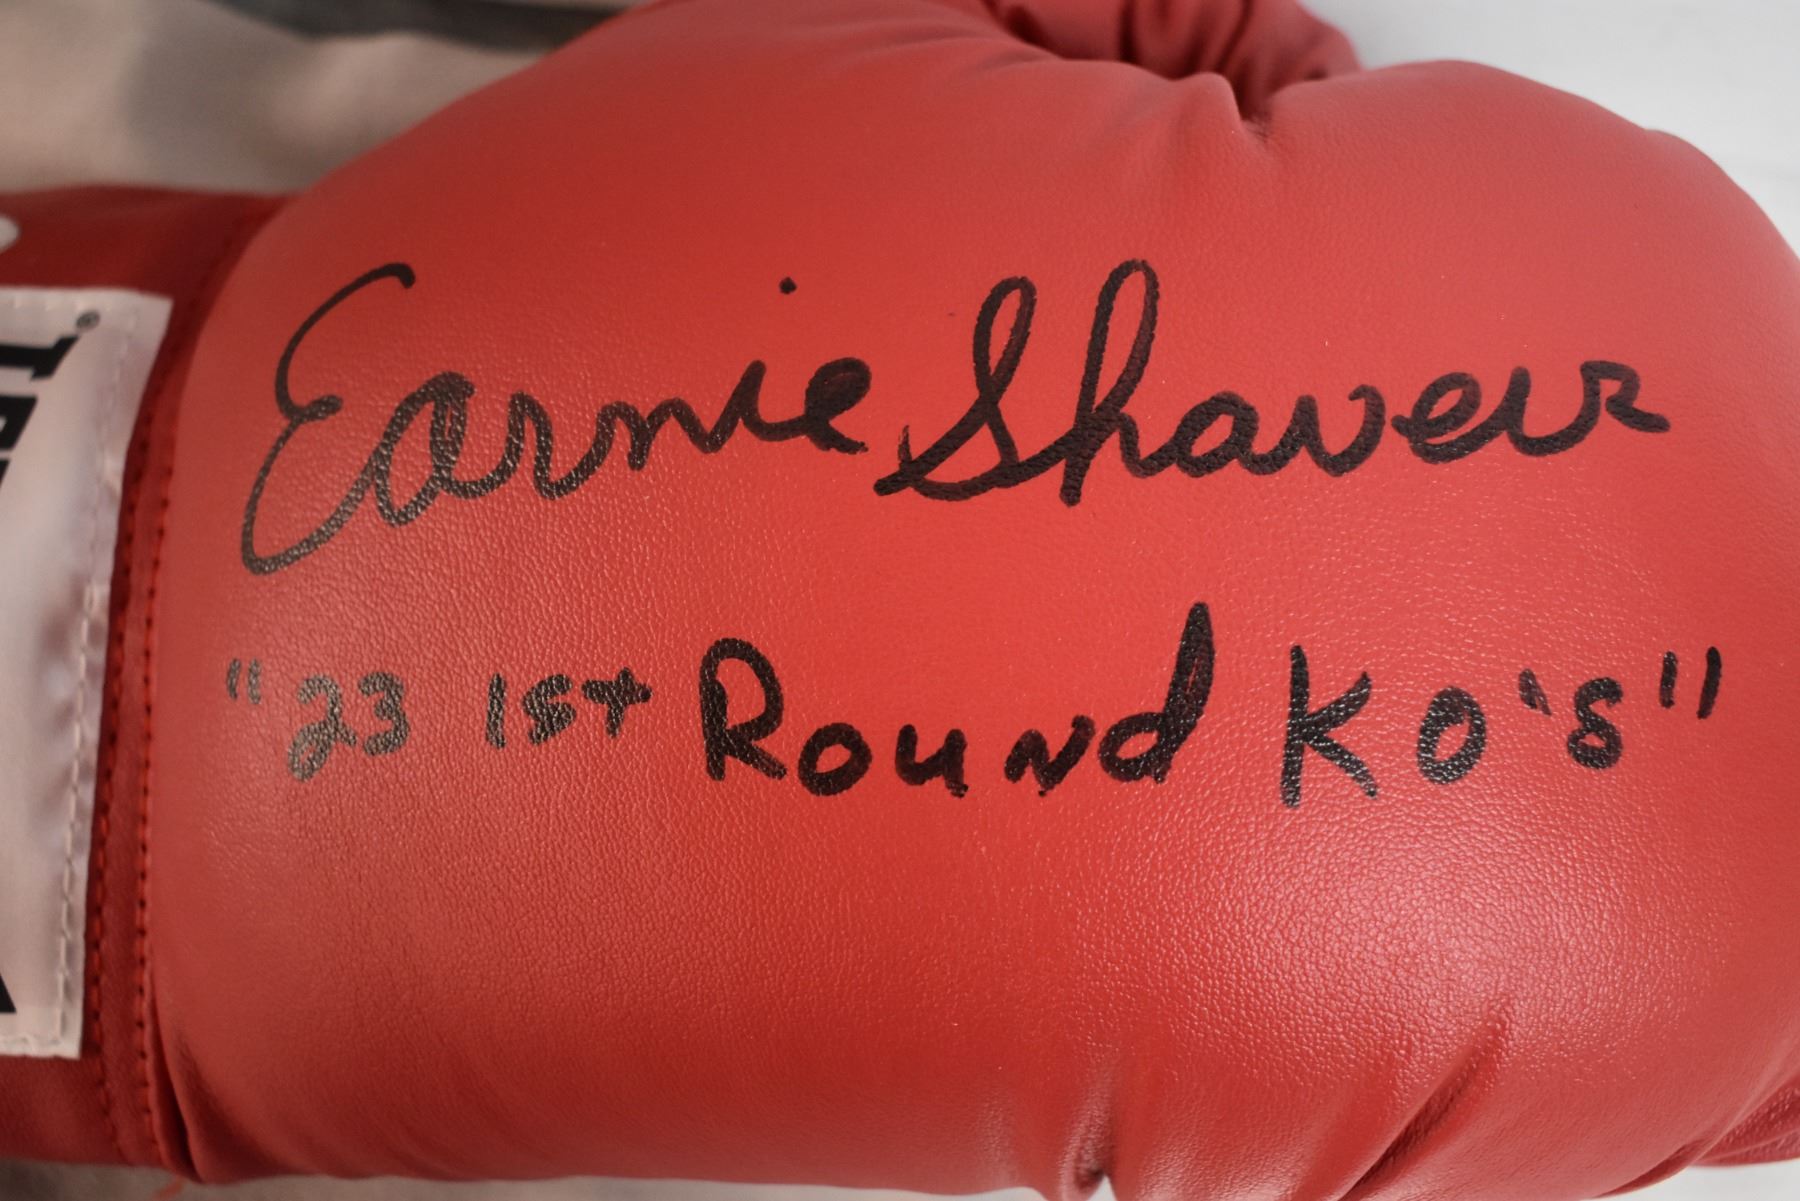 Earnie Shavers
"23 1st Round KO's"